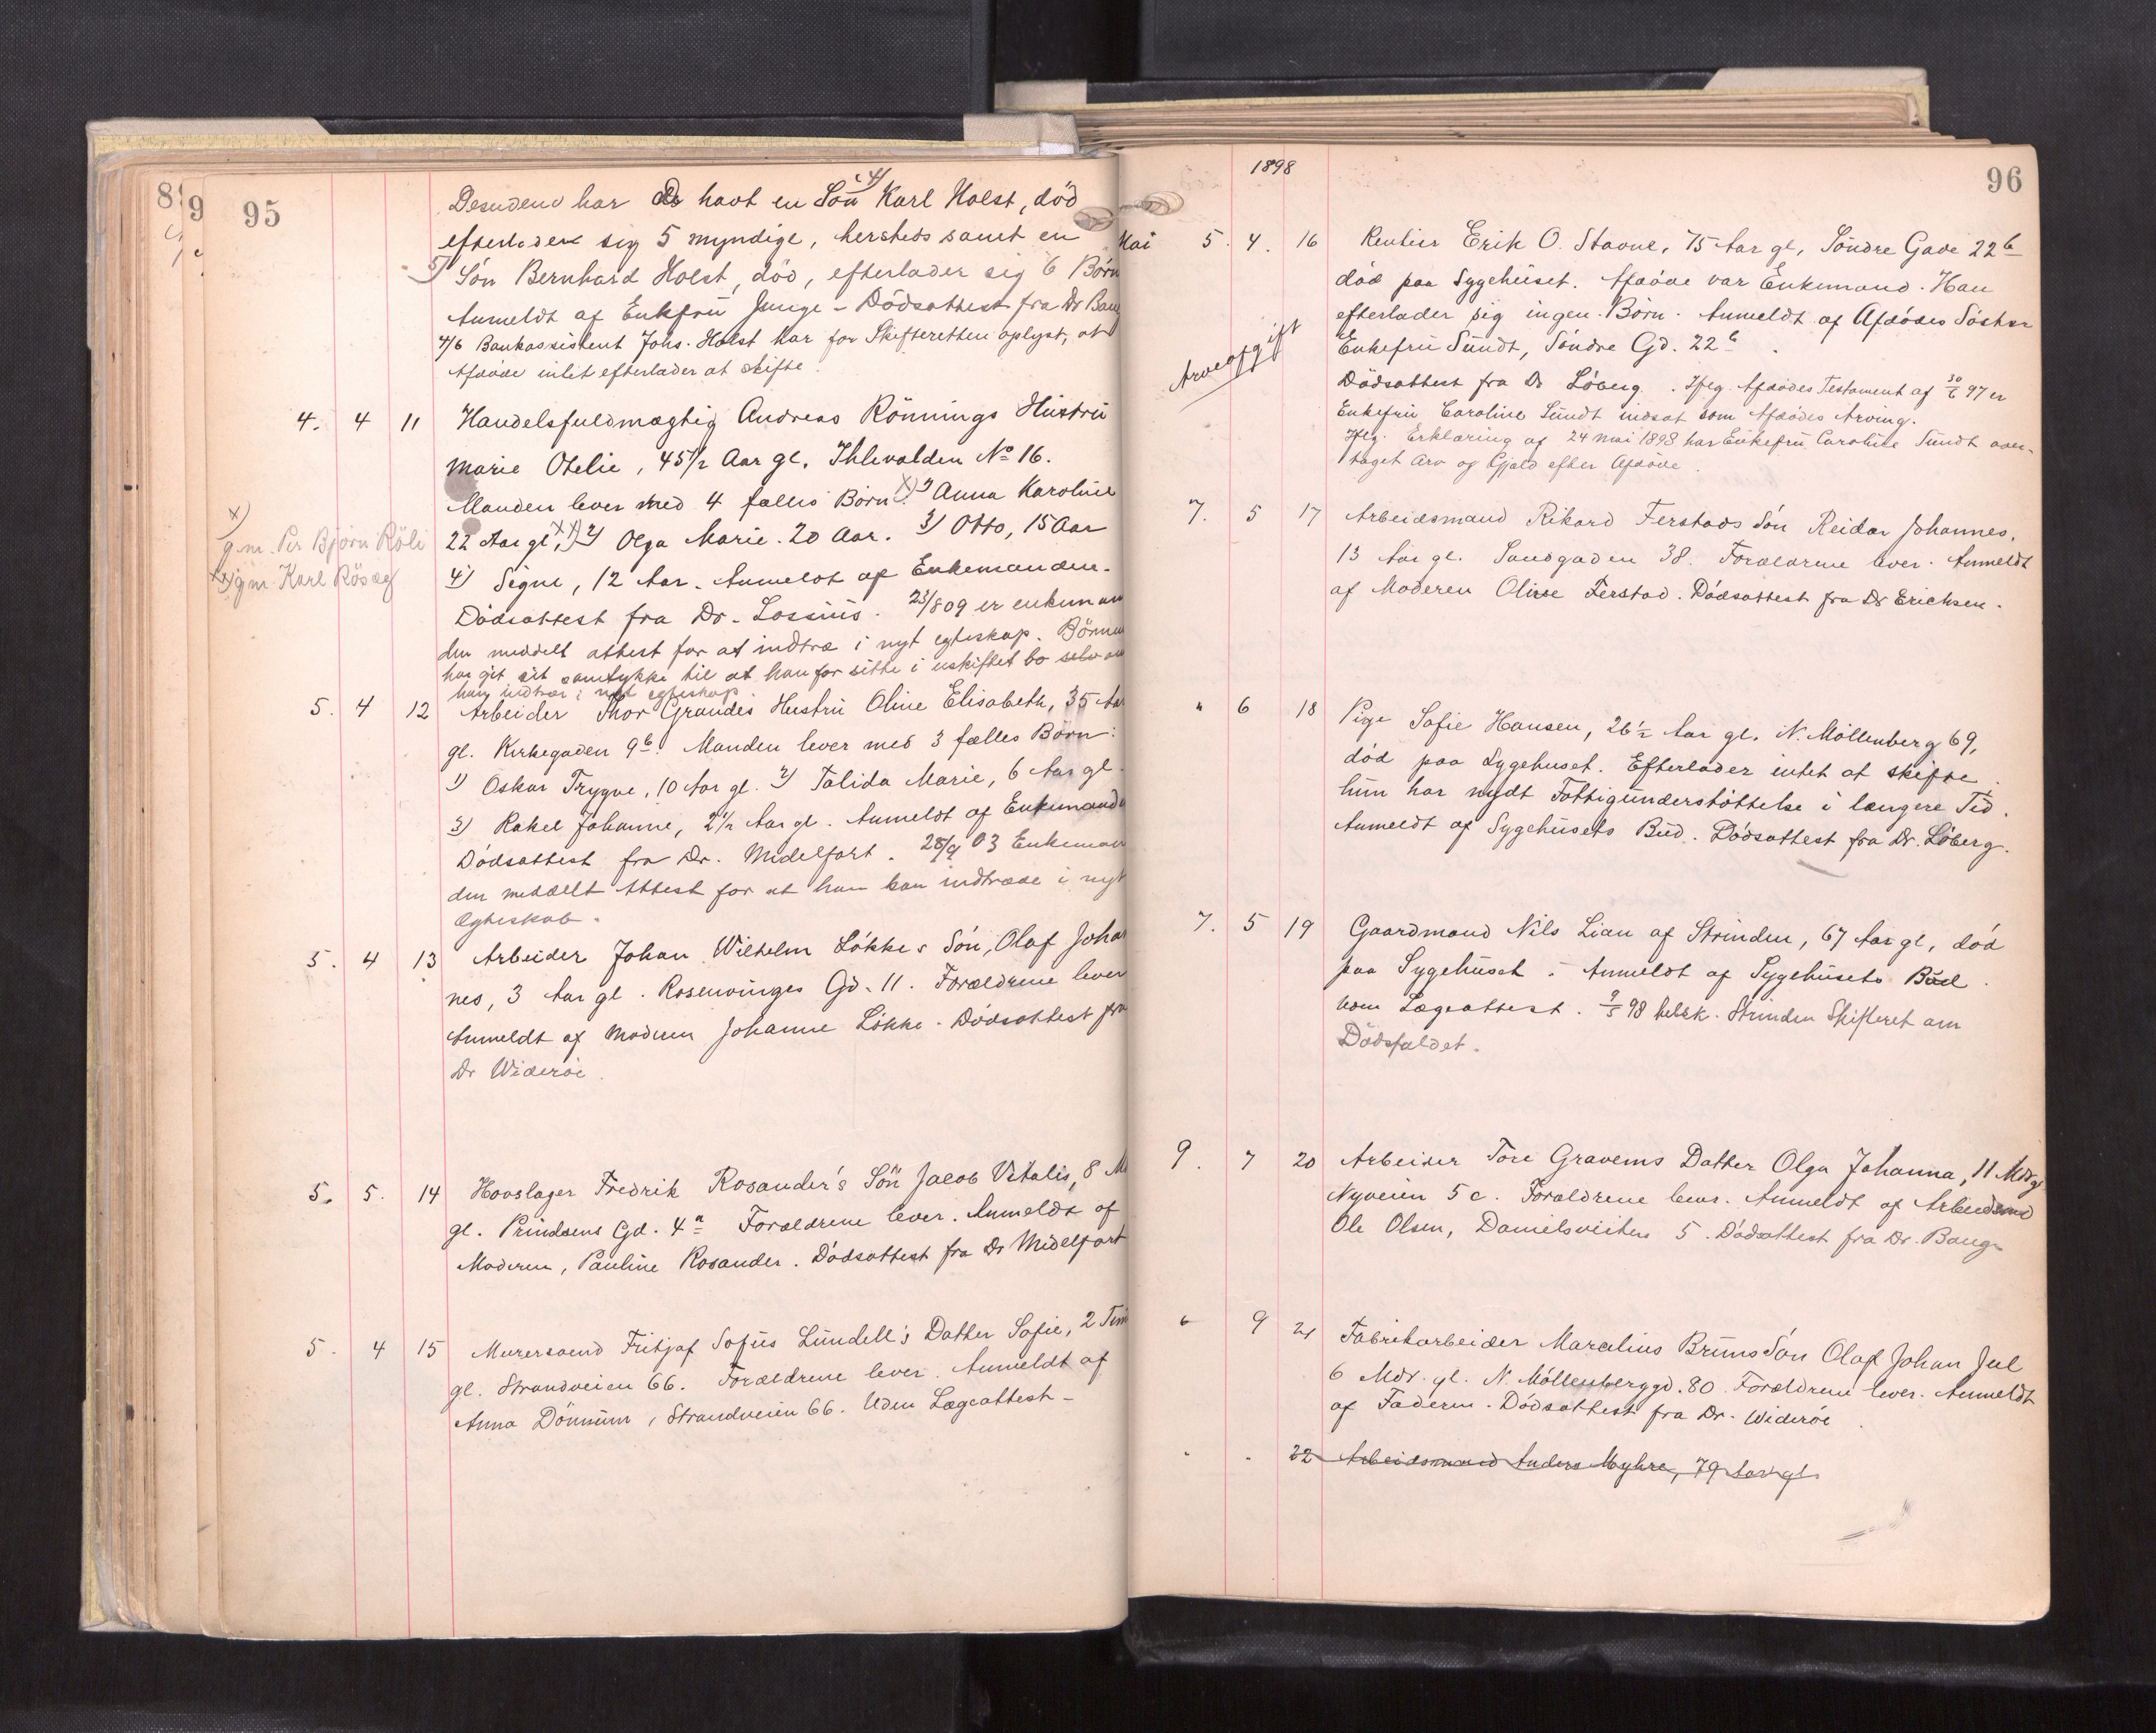 95
Desuden har de havt en Søn 4) Karl Holst, død
efterlader sig 5 myndige, hersteds samt en
5) Søn Bernhard Holst, død, efterlader sig 6 Børn
Anmeldt af Enkefru Junge - Dödsattest fra Dr
4/6 Bankassistent Johs. Holst har for Skifteretten oplyst, at
Afdøde intet efterlader at skifte.
4. 4 11 Handelsfuldmægtig Andreas Rönnings Hustru
Marie Otelie, 45 1/2 Aar gl. Ihlevolden No 16.
Manden lever med 4 fælles Børn: x) 1) Anna Karoline
x) g.m. Per Bjørn Röli
22 Aar gl. xx) 2) Olga Marie. 20 Aar. 3) Otto, 15 Aar
xx) g.m. Karl Rösæg
4) Signe, 12 Aar. Anmeldt af Enkemanden.
Dödsattest fra Dr. Lossius. 23/8 09 er enkeman
den meddelt attest for at indtræ i nyt egteskap. Börnene
har git sit samtykke til at han får sitte i uskiftet bo selv om
han indtrær i nyt egteskap.
5. 4 12 Arbeider Thor Grandes Hustru Oline Elisabeth, 35 Aar
gl. Kirkegaden 9b. Manden lever med 3 fælles Børn:
1) Oskar Trygve, 10 Aar gl. 2) Talida Marie, 6 Aar gl.
3) Rakel Johanne, 2 1/2 Aar gl. Anmeldt af Enkemanden
Dödsattest fra Dr. Midelfart. 28/9 03 Enkeman
den meddelt Attest for at han kan indtræde i nyt
Ægteskab.
5. 4 13 Arbeider Johan Wilhelm Løkkes Søn, Olaf Johan
nes, 3 Aar gl. Rosenvinges Gd. 11. Forældrene lever
Anmeldt af Moderen Johanne Løkke. Dødsattest fra
Dr Widerøe.
5. 5. 14 Hovslager Fredrik Rosander's Sön Jacob Vitalis, 8 M
gl. Prindsens Gd. 4a Forældrene lever. Anmeldt af
Moderen, Pauline Rosander. Dødsattest fra Dr Midelfart
5. 4 15 Murersvend Fritjof Sofus Lundell's Datter Sofie, 2 Tim
gl. Strandveien 66. Forældrene lever. Anmeldt af
Anna Dönnum, Strandveien 66. Uden Lægeattest-
1898
96
Mai 5. 4. 16 Rentier Erik O. Stavne, 75 Aar gl, Söndre Gade 22b
død paa Sygehuset. Afdøde var Enkemand. Han
efterlader sig ingen Børn. Anmeldt af Afdødes Söster
Arveafgift
Enkefru Sundt, Söndre Gd. 22b.
Dødsattest fra Dr Løberg. Ifølg. Afdødes Testament af 30/6 97 er
Enkefru Caroline Sundt indsat som Afdødes Arving.
Iflg. Erklæring af 24 mai 1898 har Enkefru Caroline Sundt over-
taget Arv og Gjæld efter Afdøde.
7. 5 17 Arbeidsmand Rikard Ferstads Søn Reidar Johannes,
13 Aar gl. Sandgaden 38. Forældrene lever. Anmeldt
af Moderen Oline Ferstad. Dødsattest fra Dr Erichsen.
" 6 18 Pige Sofie Hansen, 26 1/2 Aar gl. N. Möllenberg 69,
død paa Sygehuset. Efterlader intet at skifte.
hun har nydt Fattigunderstøttelse i længere Tid.
Anmeldt af Sygehusets Bud. Dødsattest fra Dr. Løberg.
7. 5 19 Gaardmand Nils Lian af Strinden, 67 Aar gl, død
paa Sygehuset. Anmeldt af Sygehusets Bud.
uden Lægeattest. 9/5 98 bekk. Strinden Skifteret om
Dødsfaldet.
9. 7 20 Arbeider Tore Gravems Datter Olga Johanna, 11 Mdgl
Nyveien 5c. Forældrene lever. Anmeldt af Arbeidsmd
Ole Olsen, Danielsveiten 5. Dødsattest fra Dr. Bauge
9 21 Fabrikarbeider Marcelius Bruns Søn Olaf Johan Juel
6 Mdr. gl. N. Möllenberggd. 80. Forældrene lever. Anmeldt
af Faderen. Dødsattest fra Dr. Widerøe.
" " 22 Arbeidsmand Anders Myhre, 79 Aar gl.